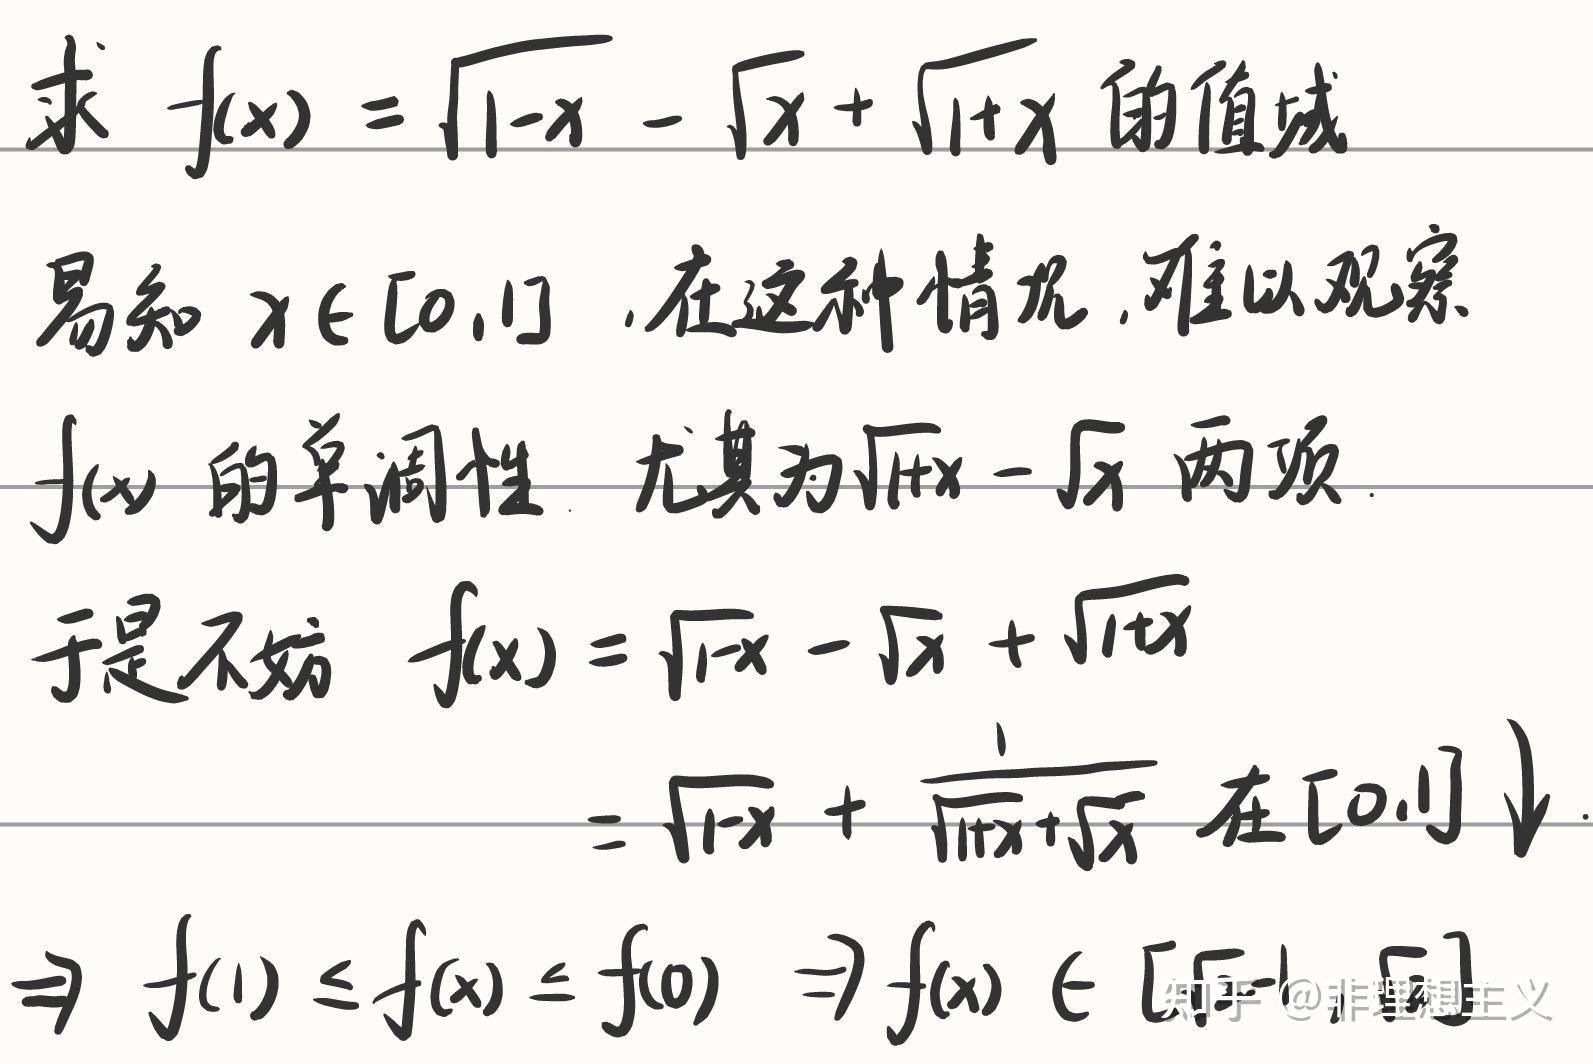 求 f(x) = √(1-x) - √x + √(1+x) 的值域
易知 x∈[0,1],在这种情况,难以观察
f(x) 的单调性. 尤其为√(1+x) - √x 两项.
于是不妨 f(x) = √(1-x) - √x + √(1+x)
= √(1-x) + 1/(√(1+x)+√x) 在[0,1]↓.
⇒ f(1) ≤ f(x) ≤ f(0) ⇒ f(x) ∈ [√2-1,
知乎 @非理想主义